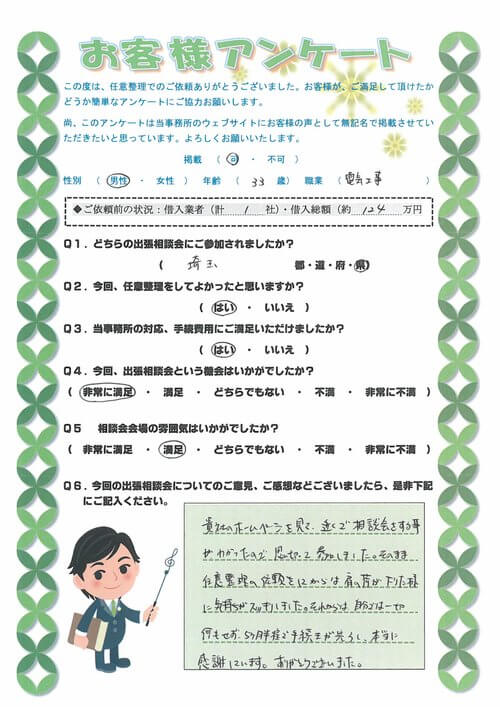 お客様アンケート
この度は、任意整理でのご依頼ありがとうございました。お客様が、ご満足して頂けたか
どうか簡単なアンケートにご協力お願いします。
尚、このアンケートは当事務所のウェブサイトにお客様の声として無記名で掲載させてい
ただきたいと思っています。よろしくお願いいたします。
掲載 ( 可 ・ 不可 )
性別 ( 男性 ・ 女性 ) 年齢 ( 33 歳) 職業 ( 電気工事 )
◆ご依頼前の状況:借入業者(計 1 社)・借入総額(約 124 万円
Q1.どちらの出張相談会にご参加されましたか?
( 埼玉 都・道・府・県)
Q2.今回、任意整理をしてよかったと思いますか?
( はい ・ いいえ )
Q3.当事務所の対応、手続費用にご満足いただけましたか?
( はい ・ いいえ )
Q4.今回、出張相談会という機会はいかがでしたか?
( 非常に満足 ・ 満足 ・ どちらでもない ・ 不満 ・ 非常に不満 )
Q5 相談会会場の雰囲気はいかがでしたか?
( 非常に満足 ・ 満足 ・ どちらでもない ・ 不満 ・ 非常に不満 )
Q6.今回の出張相談会についてのご意見、ご感想などございましたら、是非下記
にご記入ください。
貴社のホームページを見て、近くで相談会をする事
がわかったので思切って参加しました。そのまま
任意整理の依頼をしてからは肩の荷が下りた様
に気持ちがスッキリしました。それからは
何もせず、5ヶ月半程で手続きが終了し、本当に
感謝しています。ありがとうございました。